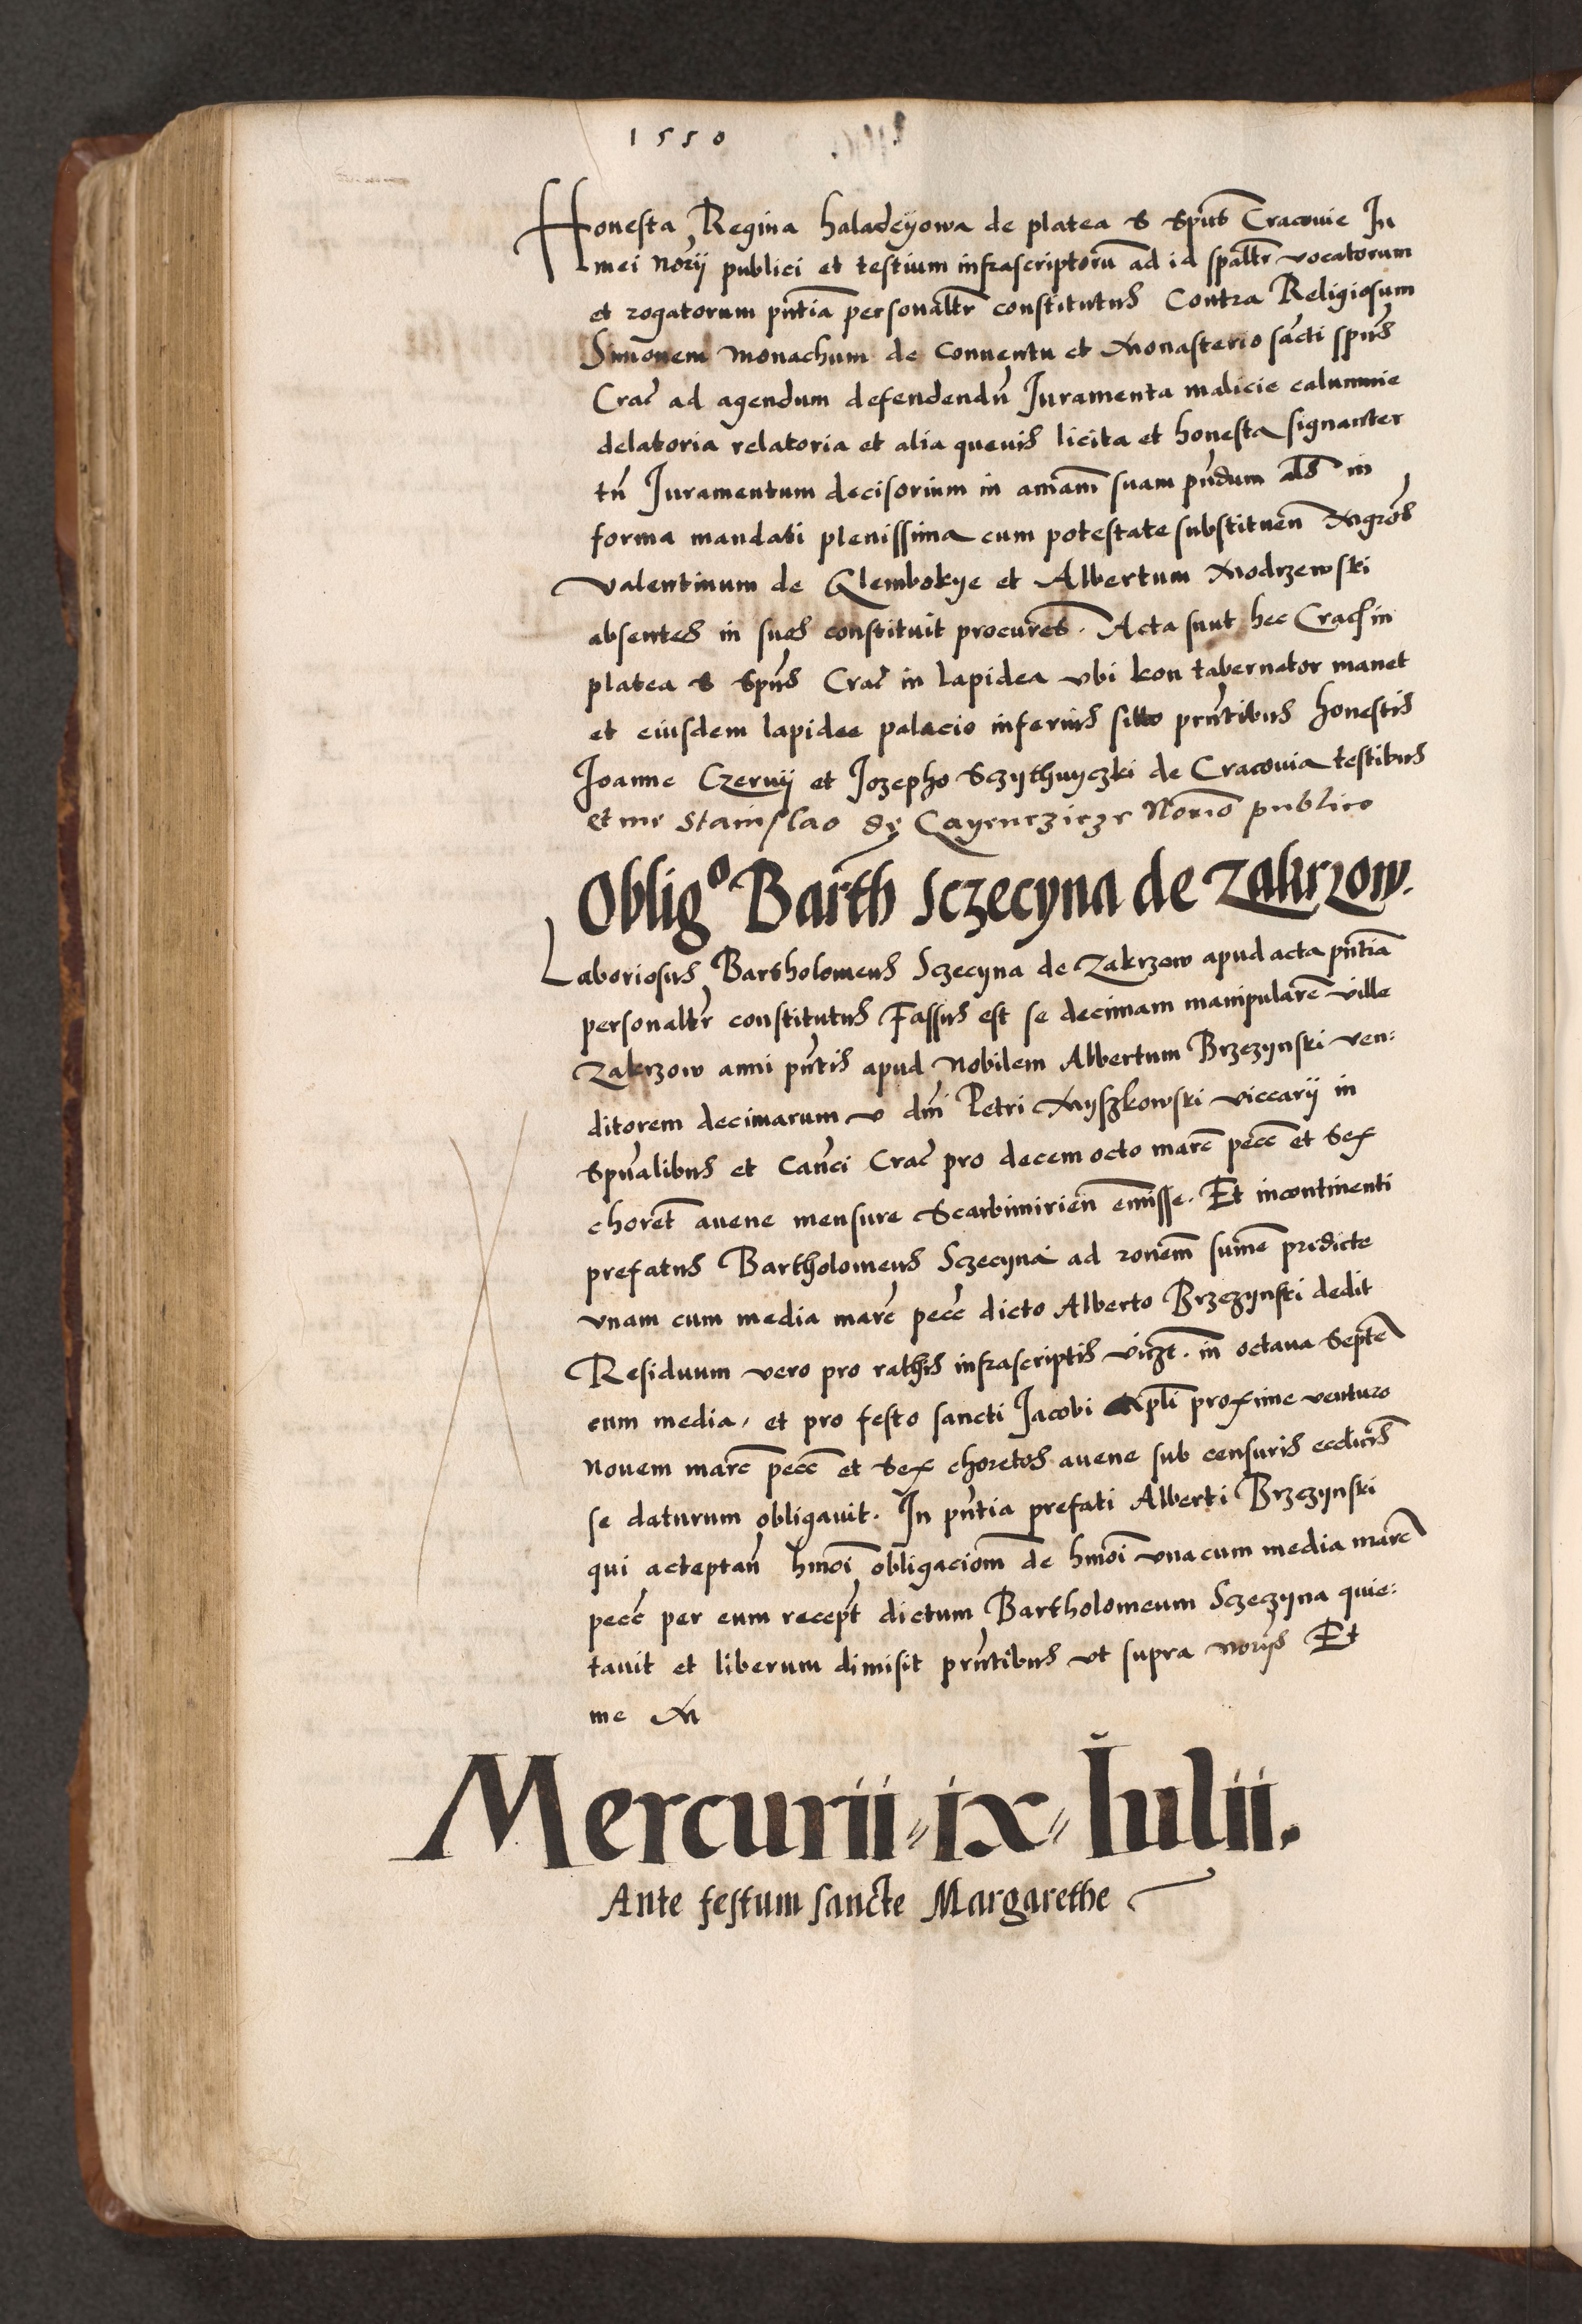 1550
Honesta Regina haladeyowa de platea S Spūs Cracouie In
mei Norij publici et testium infrascriptorū ad id spaltr vocatorum
et rogatorum pntia personaltr constitutus Contra Religiosum
Simonem monachum de Conuentu et Monasterio sācti spūs
Crac ad agendum defendendū Iuramenta malicie calumnie
delatoria relatoria et alia queuis licita et honesta signanter
tn̄ Iuramentum decisorium in animam suam pn̄dum als in
forma mandati plenissima cum potestate substituen Mgros
valentinum de Glembokye et Albertum Modrzewski
absentes in suos constituit procures. Acta sunt hec Crac in
platea S Spūs Crac in lapidea vbi kon tabernator manet
et eiusdem lapidee palacio inferius sitto pn̄tibus honestis
Ioanne Czernij et Iozepho Sczythnyczki de Cracouia testibus
et me Stanislao de Norio publico
Obligº Barth Sczecyna de Zakrzow.
Laboriosus Bartholomeus Sczecyna de Zakrzow apud acta pn̄tia
personaltr constitutus Fassus est se decimam manipularē ville
Zakrzow anni pn̄tis apud Nobilem Albertum Brzezynski ven:
ditorem decimarum v dn̄i Petri Myszkowski viccarij in
Spūalibus et Canci Crac pro decem octo marc pecc et Sex
choret auene mensure Scarbimirien emisse. Et incontinenti
prefatus Bartholomeus Sczecyna ad ronem sume predicte
vnam cum media marc pecc dicto Alberto Brzezynski dedit
Residuum vero pro rathis infrascriptis vičzt. in octaua Septē
cum media, et pro festo sancti Iacobi Apli proxime venturo
nouem marc pecc et Sex choretos auene sub censuris ecclicis
se daturum obligauit. In pn̄tia prefati Alberti Brzezynski
qui acteptan hmoi obligaciom de hmoi vnacum media marc
pecc per eum recept dictum Bartholomeum Sczeczyna quie:
tauit et liberum dimisit pn̄tibus vt supra norijs Et
me M
Mercurii ix Iulii.
Ante festum sancte Margarethe